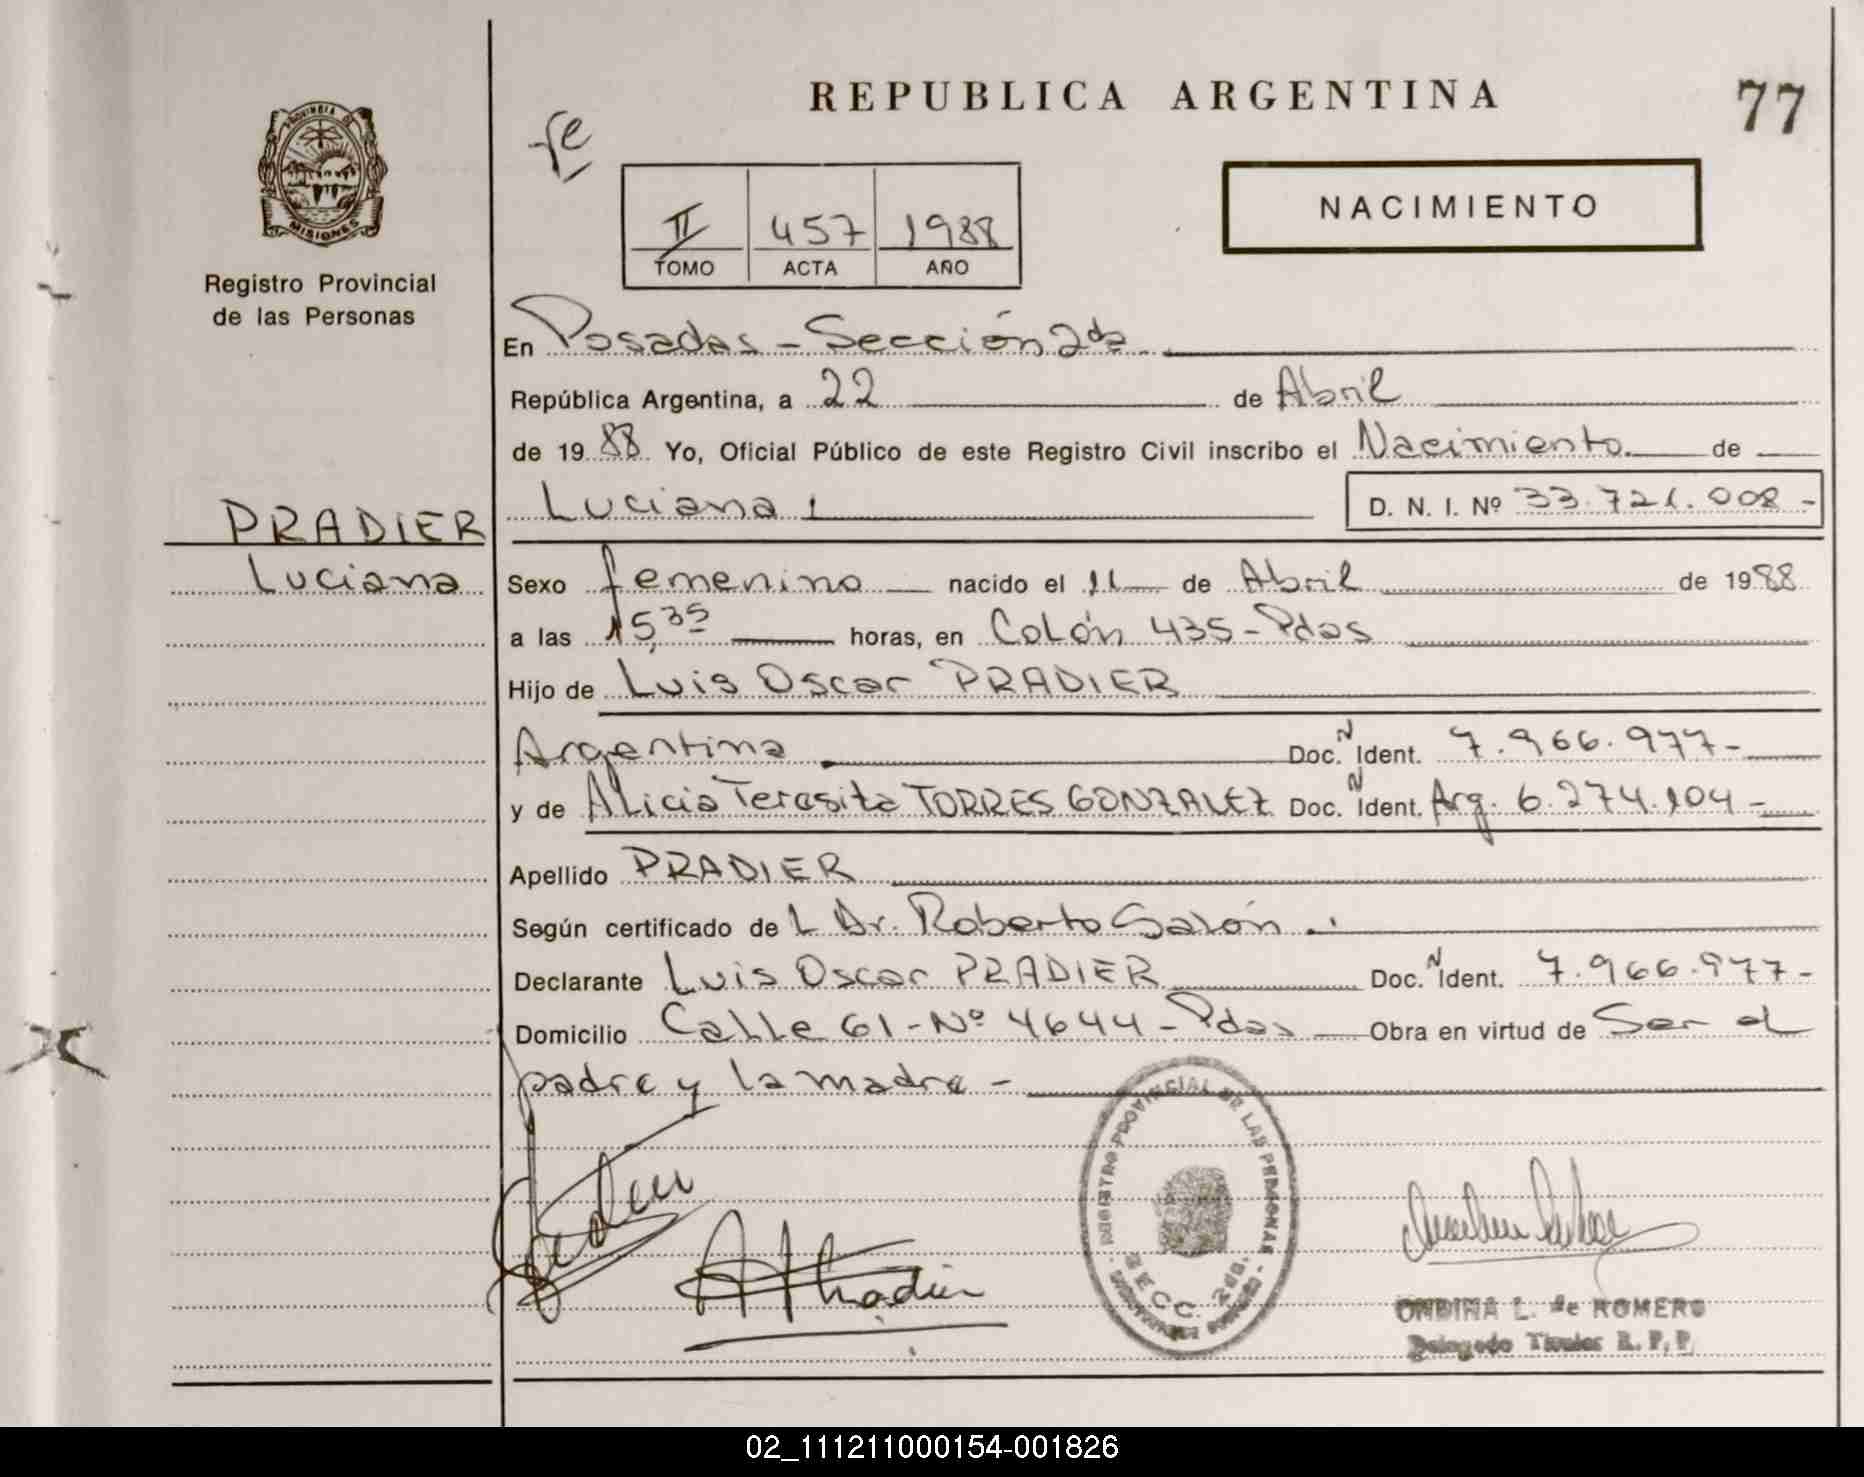 REPUBLICA ARGENTINA
77
PROVINCIA DE
MISIONES
Registro Provincial
de las Personas
NACIMIENTO
II 457 1988
TOMO ACTA AÑO
En Posadas - Sección 2da
República Argentina, a 22 de Abril
de 1988 Yo, Oficial Público de este Registro Civil inscribo el Nacimiento de
Luciana D. N. I. Nº 33.721.008-
PRADIER
Luciana
Sexo femenino nacido el 11 de Abril de 1988
a las 15,35 horas, en Colón 435 - Pdas
Hijo de Luis Oscar PRADIER
Argentina Doc. N Ident. 7.966.977-
y de Alicia Teresita TORRES GONZALEZ Doc. N Ident. Arg. 6.274.104-
Apellido PRADIER
Según certificado de L Dr. Roberto Galón
Declarante Luis Oscar PRADIER Doc. N Ident. 7.966.977-
Domicilio Calle 61 - Nº 4644 - Pdas Obra en virtud de Ser el
padre y la madre -
REGISTRO PROVINCIAL DE LAS PERSONAS
SECC. 2da.
ONDINA L. de ROMERO
Delegado Titular R. P. P.
02_111211000154-001826